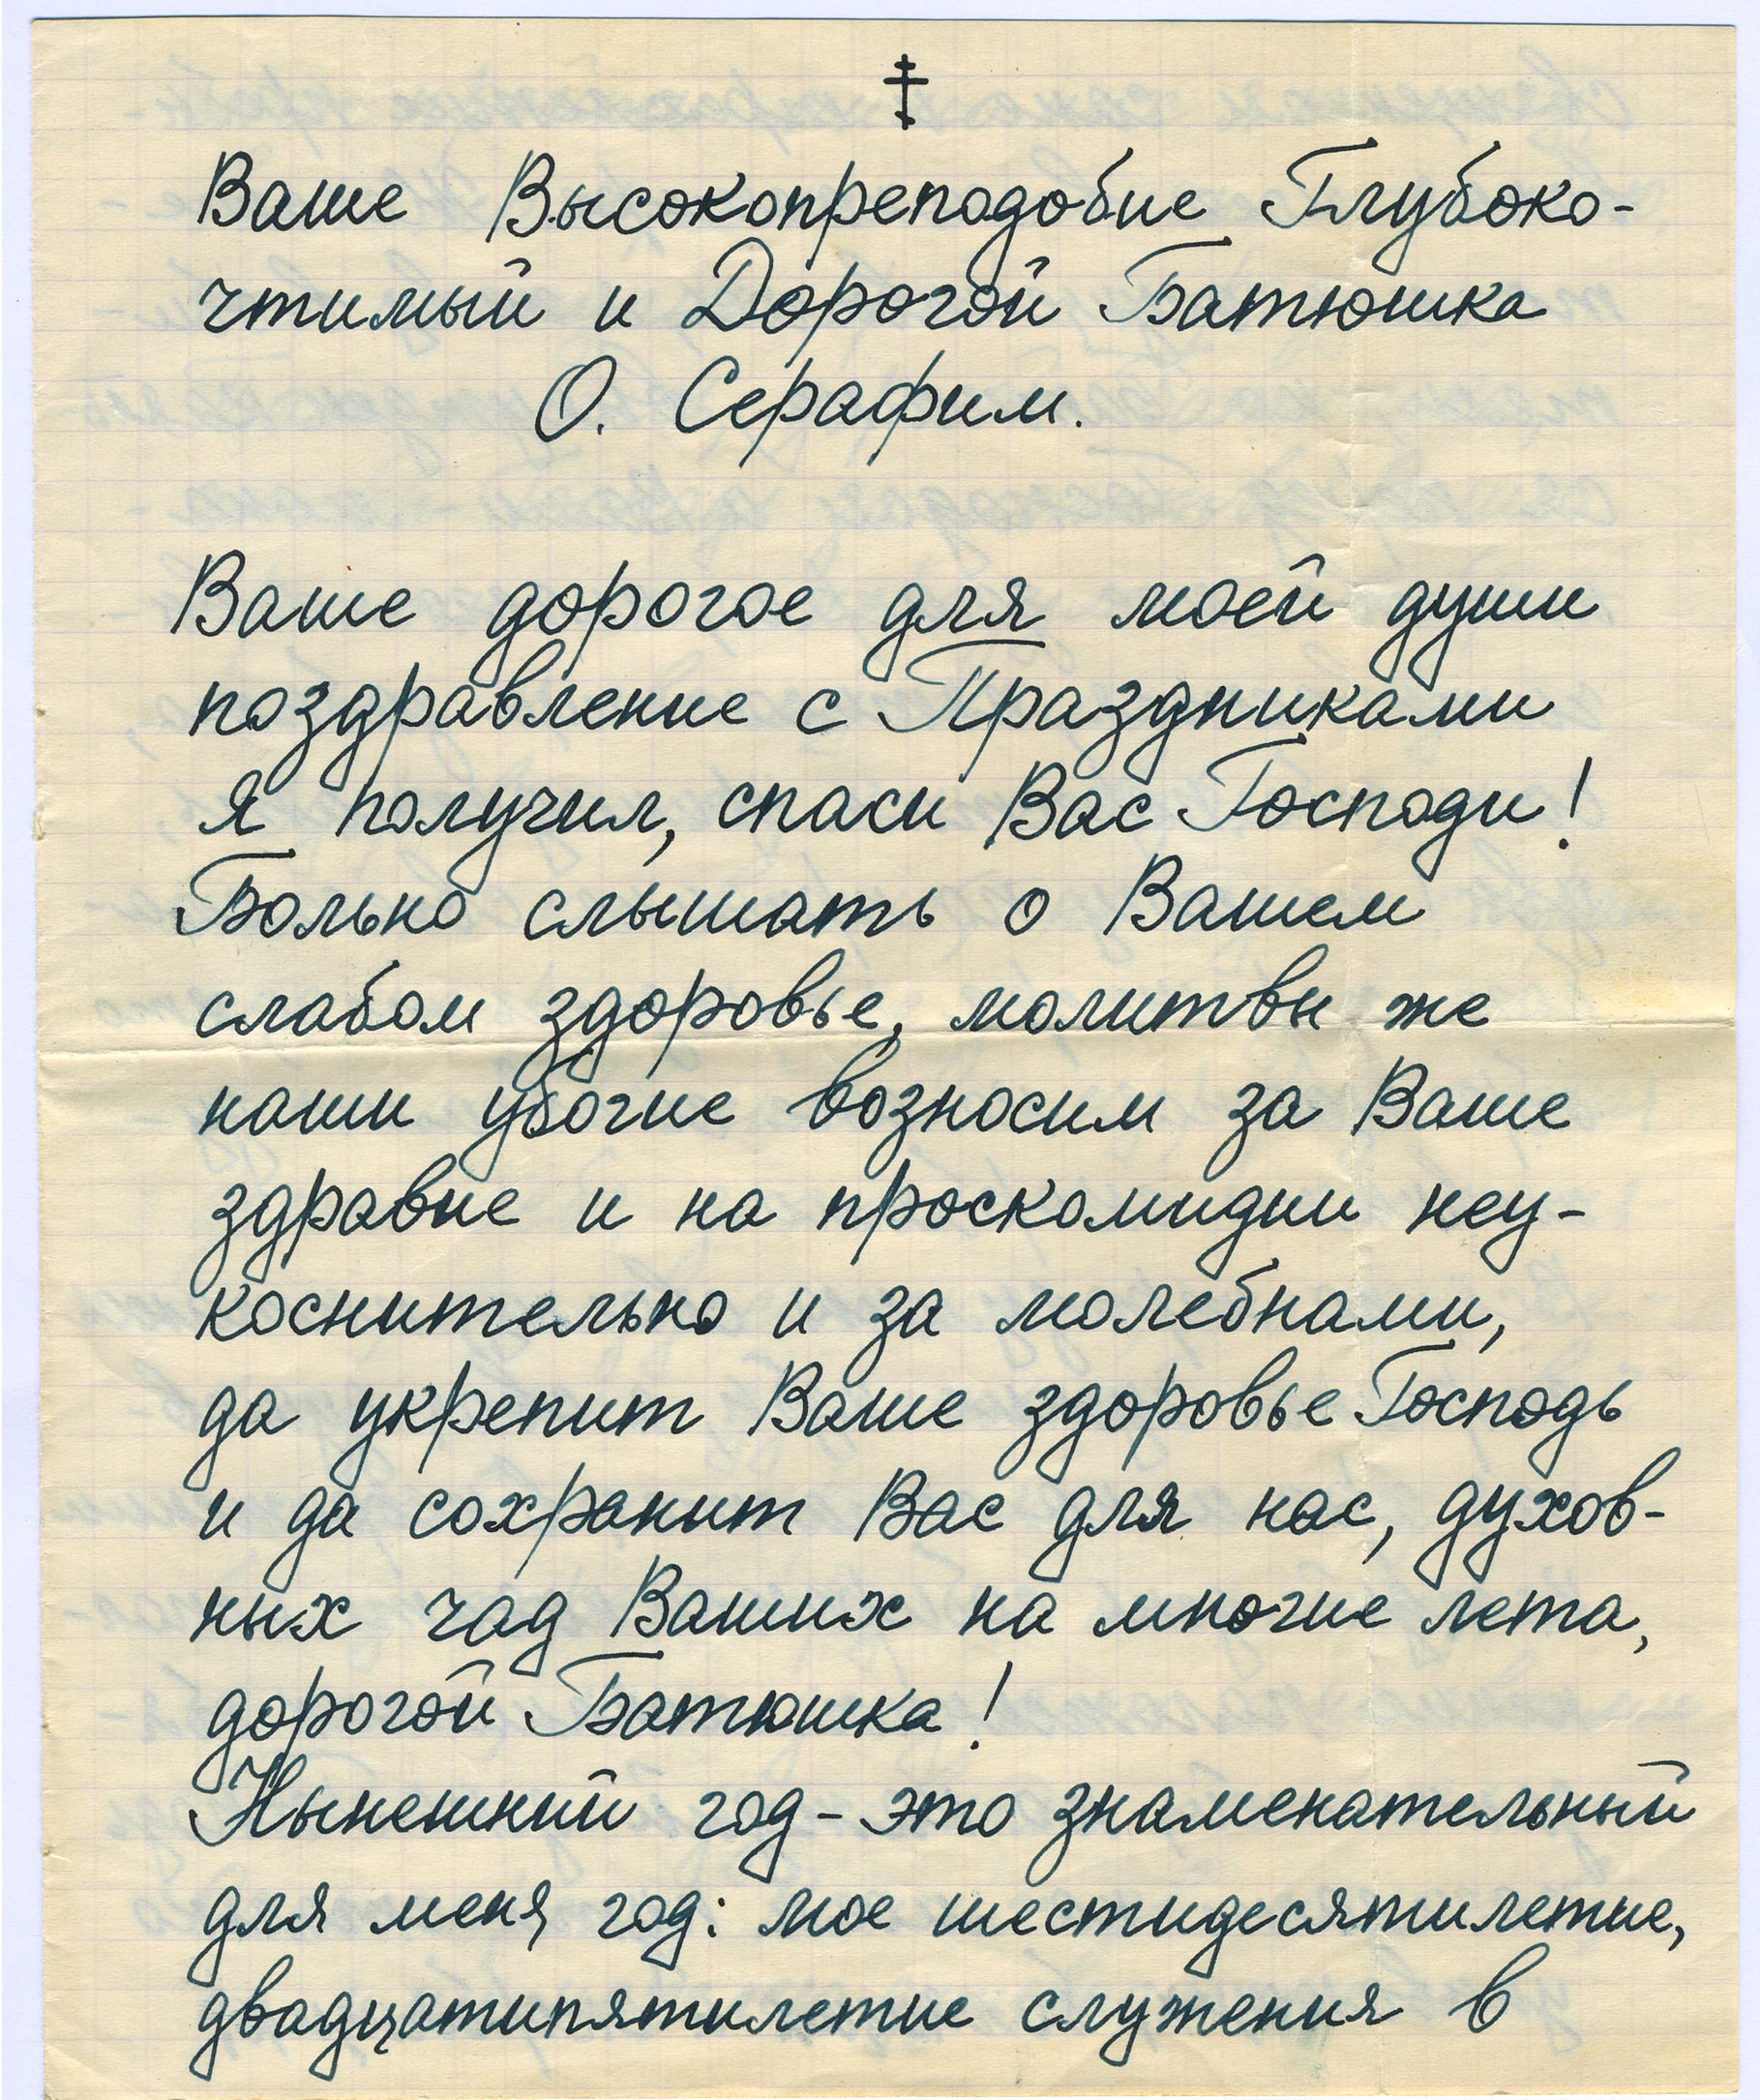 Ваше Высокопреподобие Глубоко-
чтимый и Дорогой Батюшка
О. Серафим.
Ваше дорогое для моей души
поздравление с Праздниками
я получил, спаси Вас Господи!
Больно слышать о Вашем
слабом здоровье, молитвы же
наши убогие возносим за Ваше
здравие и на проскомидии неу-
коснительно и за молебнами,
да укрепит Ваше здоровье Господь
и да сохранит Вас для нас, духов-
ных чад Ваших на многие лета,
дорогой Батюшка!
Нынешний год - это знаменательный
для меня год: мое шестидесятилетие,
двадцатипятилетие служения в